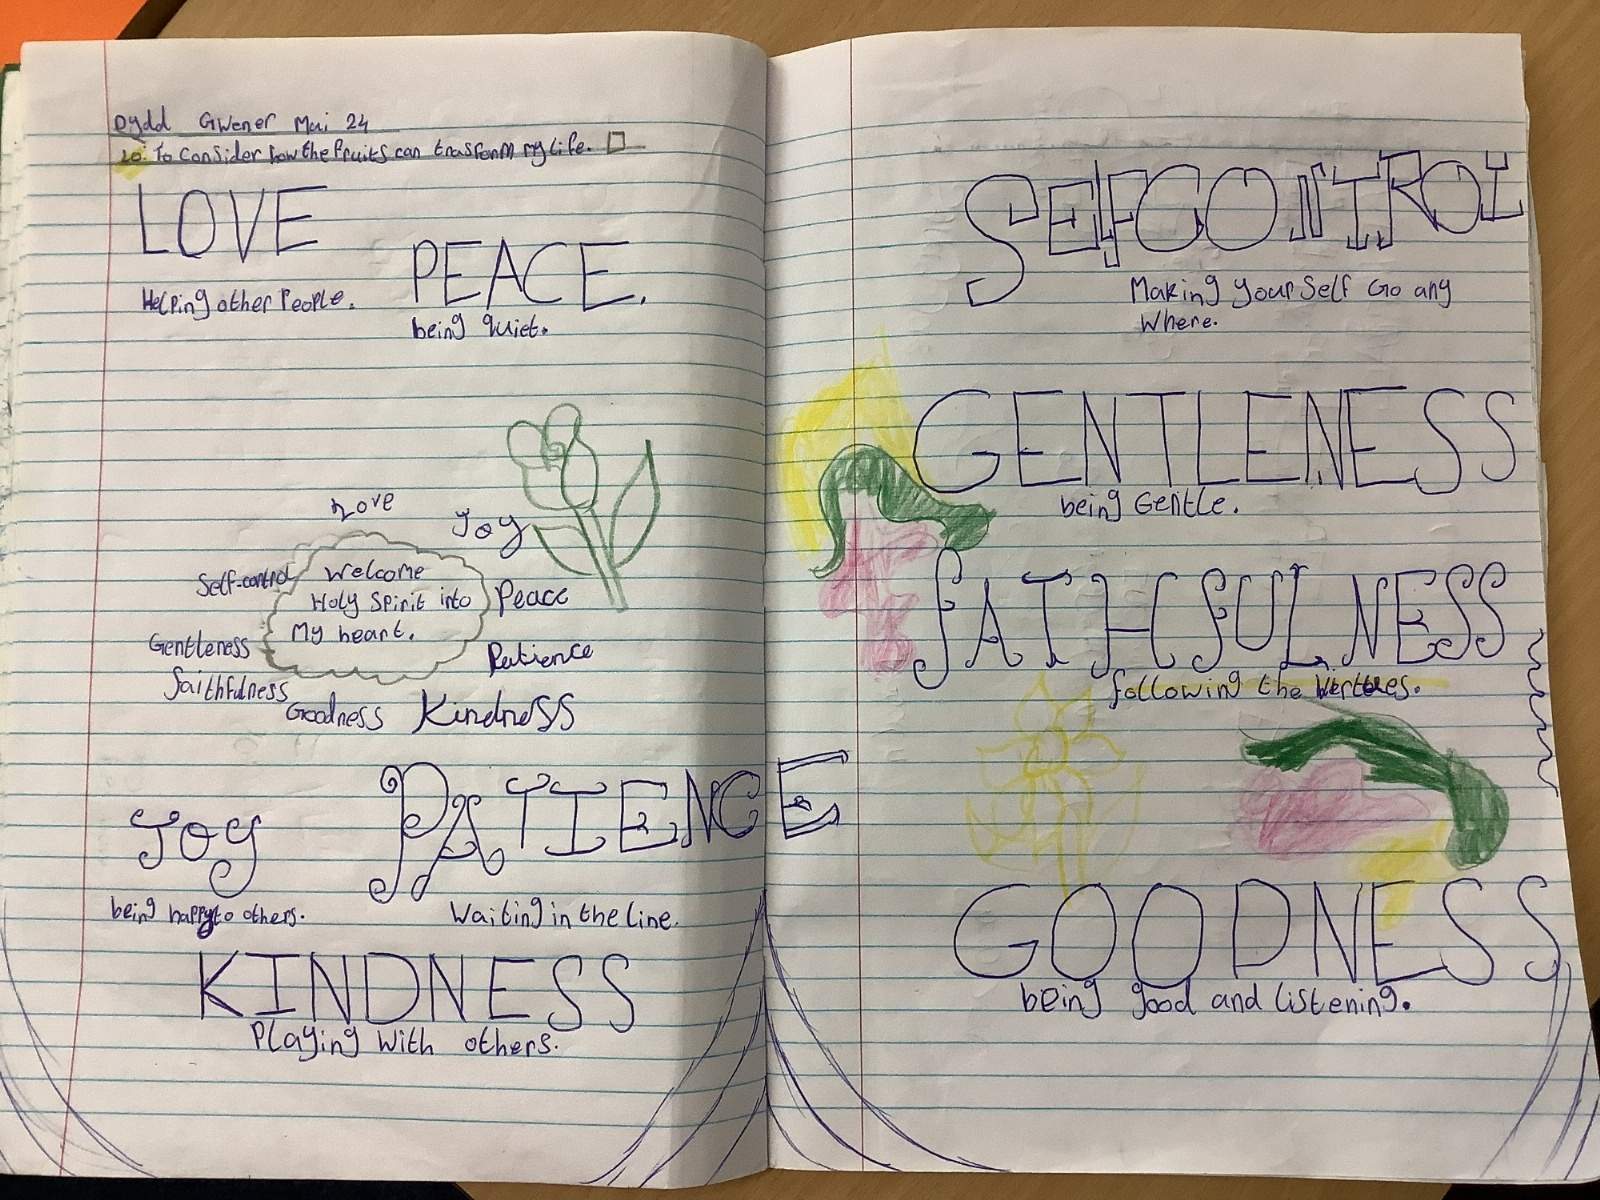 Dydd Gwener Mai 24
LO: To consider how the fruits can trasform my life.
LOVE
Helping other People.
PEACE.
being quiet.
Love
Joy
Self-control
Welcome
Holy Spirit into
My heart.
Peace
Gentleness
Patience
faithfulness
Goodness
Kindness
JOY
being happy to others.
PATIENCE
Waiting in the line.
KINDNESS
Playing with others.
SELFCONTROL
Making your Self Go any
Where.
GENTLENESS
being Gentle.
FATHFULNESS
following the
GOODNESS
being good and listening.